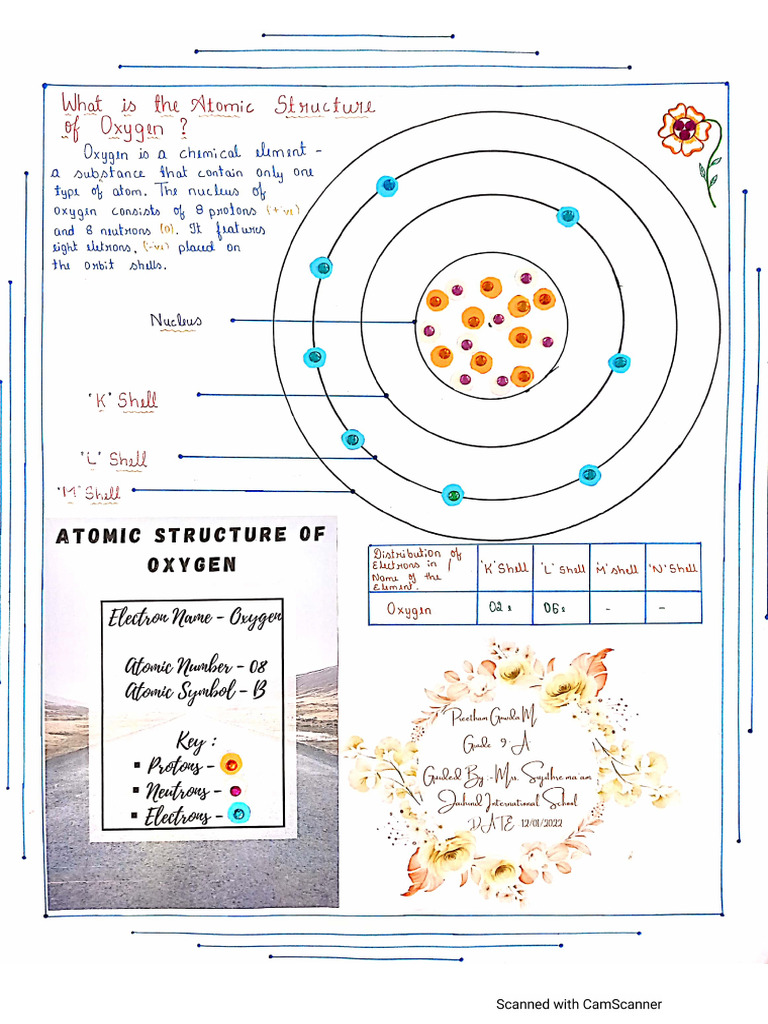 What is the Atomic Structure
of Oxygen ?
Oxygen is a chemical element -
a substance that contain only one
type of atom. The nucleus of
oxygen consists of 8 protons (+ve)
and 8 neutrons (0). It features
eight eletrons. (-ve) placed on
the orbit shells.
Nucleus
'K' Shell
'L' Shell
'M' Shell
ATOMIC STRUCTURE OF
OXYGEN
Electron Name - Oxygen
Atomic Number - 08
Atomic Symbol - B
Key :
▪ Protons -
▪ Neutrons -
▪ Electrons -
Distribution of
Electrons in /
Name of the
Element.
'K' Shell
'L' Shell
'M' shell
'N' Shell
Oxygen
02e
06e
-
-
Preetham Gowda M
Grade 9-A
Guided By :- Mrs. ma'am
International School
DATE 12/01/2022
Scanned with CamScanner